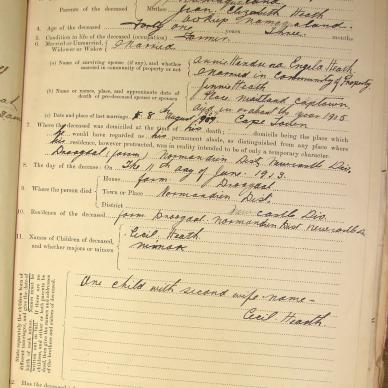 Parents of the deceased
Mother Jean Elizabeth Heath
Namaqualand
4. Age of the deceased Forty one years Three months
5. Condition in life of the deceased (occupation) Farmer
6. Married or Unmarried, Widower or Widow Married
(a) Name of surviving spouse (if any), and whether married in community of property or not Annie Handrena Engela Heath
married in Community of Property
(b) Name or names, place, and approximate date of death of pre-deceased spouse or spouses Jennie Heath
Place Maitland, Capetown
the year 1905
(c) Date and place of last marriage 8 August 1907 Cape Town
7. Where the deceased was domiciled at the time of his death; domicile being the place which
he would have regarded as his permanent abode, as distinguished from any place where
his residence, however protracted, was in reality intended to be of only a temporary character.
Droogdal (farm) Normandien Dist, Newcastle Div.
8. The day of the decease: On The 11 day of June 1913.
9. Where the person died
House farm Droogdal
Town or Place Normandien Dist.
District Newcastle Div.
10. Residence of the deceased farm Droogdal Normandien Dist Newcastle
11. Names of Children of deceased, and whether majors or minors
Cecil Heath
minor
One child with second wife - name -
Cecil Heath
State separately the children born of different marriages, and give the date of birth of each minor.
12. Has the deceased